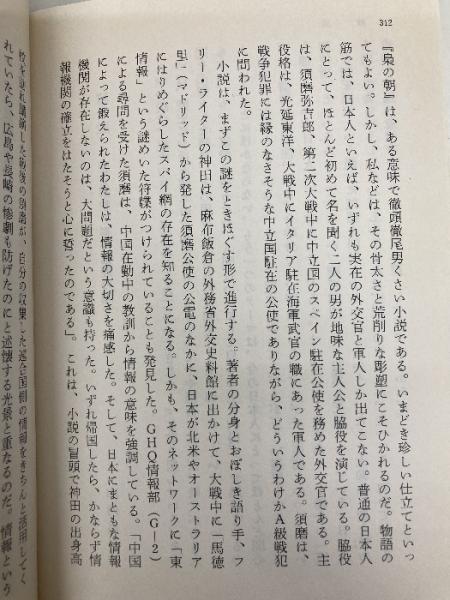 312
『梟の朝』は、ある意味で徹頭徹尾男くさい小説である。いまどき珍しい仕立てといっ
てもよい。しかし、私などは、その骨太さと荒削りな彫塑にこそひかれるのだ。物語の
筋では、日本人といえば、いずれも実在の外交官と軍人しか出てこない。普通の日本人
にとって、ほとんど初めて名を聞く二人の男が地味な主人公と脇役を演じている。主
は、須磨弥吉郎、第二次大戦中に中立国のスペイン駐在公使を務めた外交官である。脇
役格は、光延東洋、大戦中にイタリア駐在海軍武官の職にあった軍人である。須磨は、
戦争犯罪には縁のなさそうな中立国駐在の公使でありながら、どういうわけかA級戦犯
に問われた。
小説は、まずこの謎をときほぐす形で進行する。著者の分身とおぼしき語り手、フ
リー・ライターの神田は、麻布飯倉の外務省外交史料館に出かけて、大戦中に「馬徳
里」(マドリッド)から発した須磨公使の公電のなかに、日本が北米やオーストラリア
にはりめぐらしたスパイ網の存在を知ることになる。しかも、そのネットワークに「東
情報」という謎めいた符牒がつけられていることも発見した。GHQ情報部(G―2)
による尋問を受けた須磨は、中国在勤中の教訓から情報の意味を強調している。「中国
によって鍛えられたわたしは、情報の大切さを痛感した。そして、日本にまともな情報
機関が存在しないのは、大問題だという意識も持った。いずれ帰国したら、かならず情
報機関の確立をはたそうと心に誓ったのである」。これは、小説の冒頭で神田の出身高
校を訪れ講演した戦後の須磨が、自分の収集した連合国側の情報をきちんと活用してく
れていたら、広島や長崎の惨劇も防げたのにと述懐する光景と重なるのだ。情報という